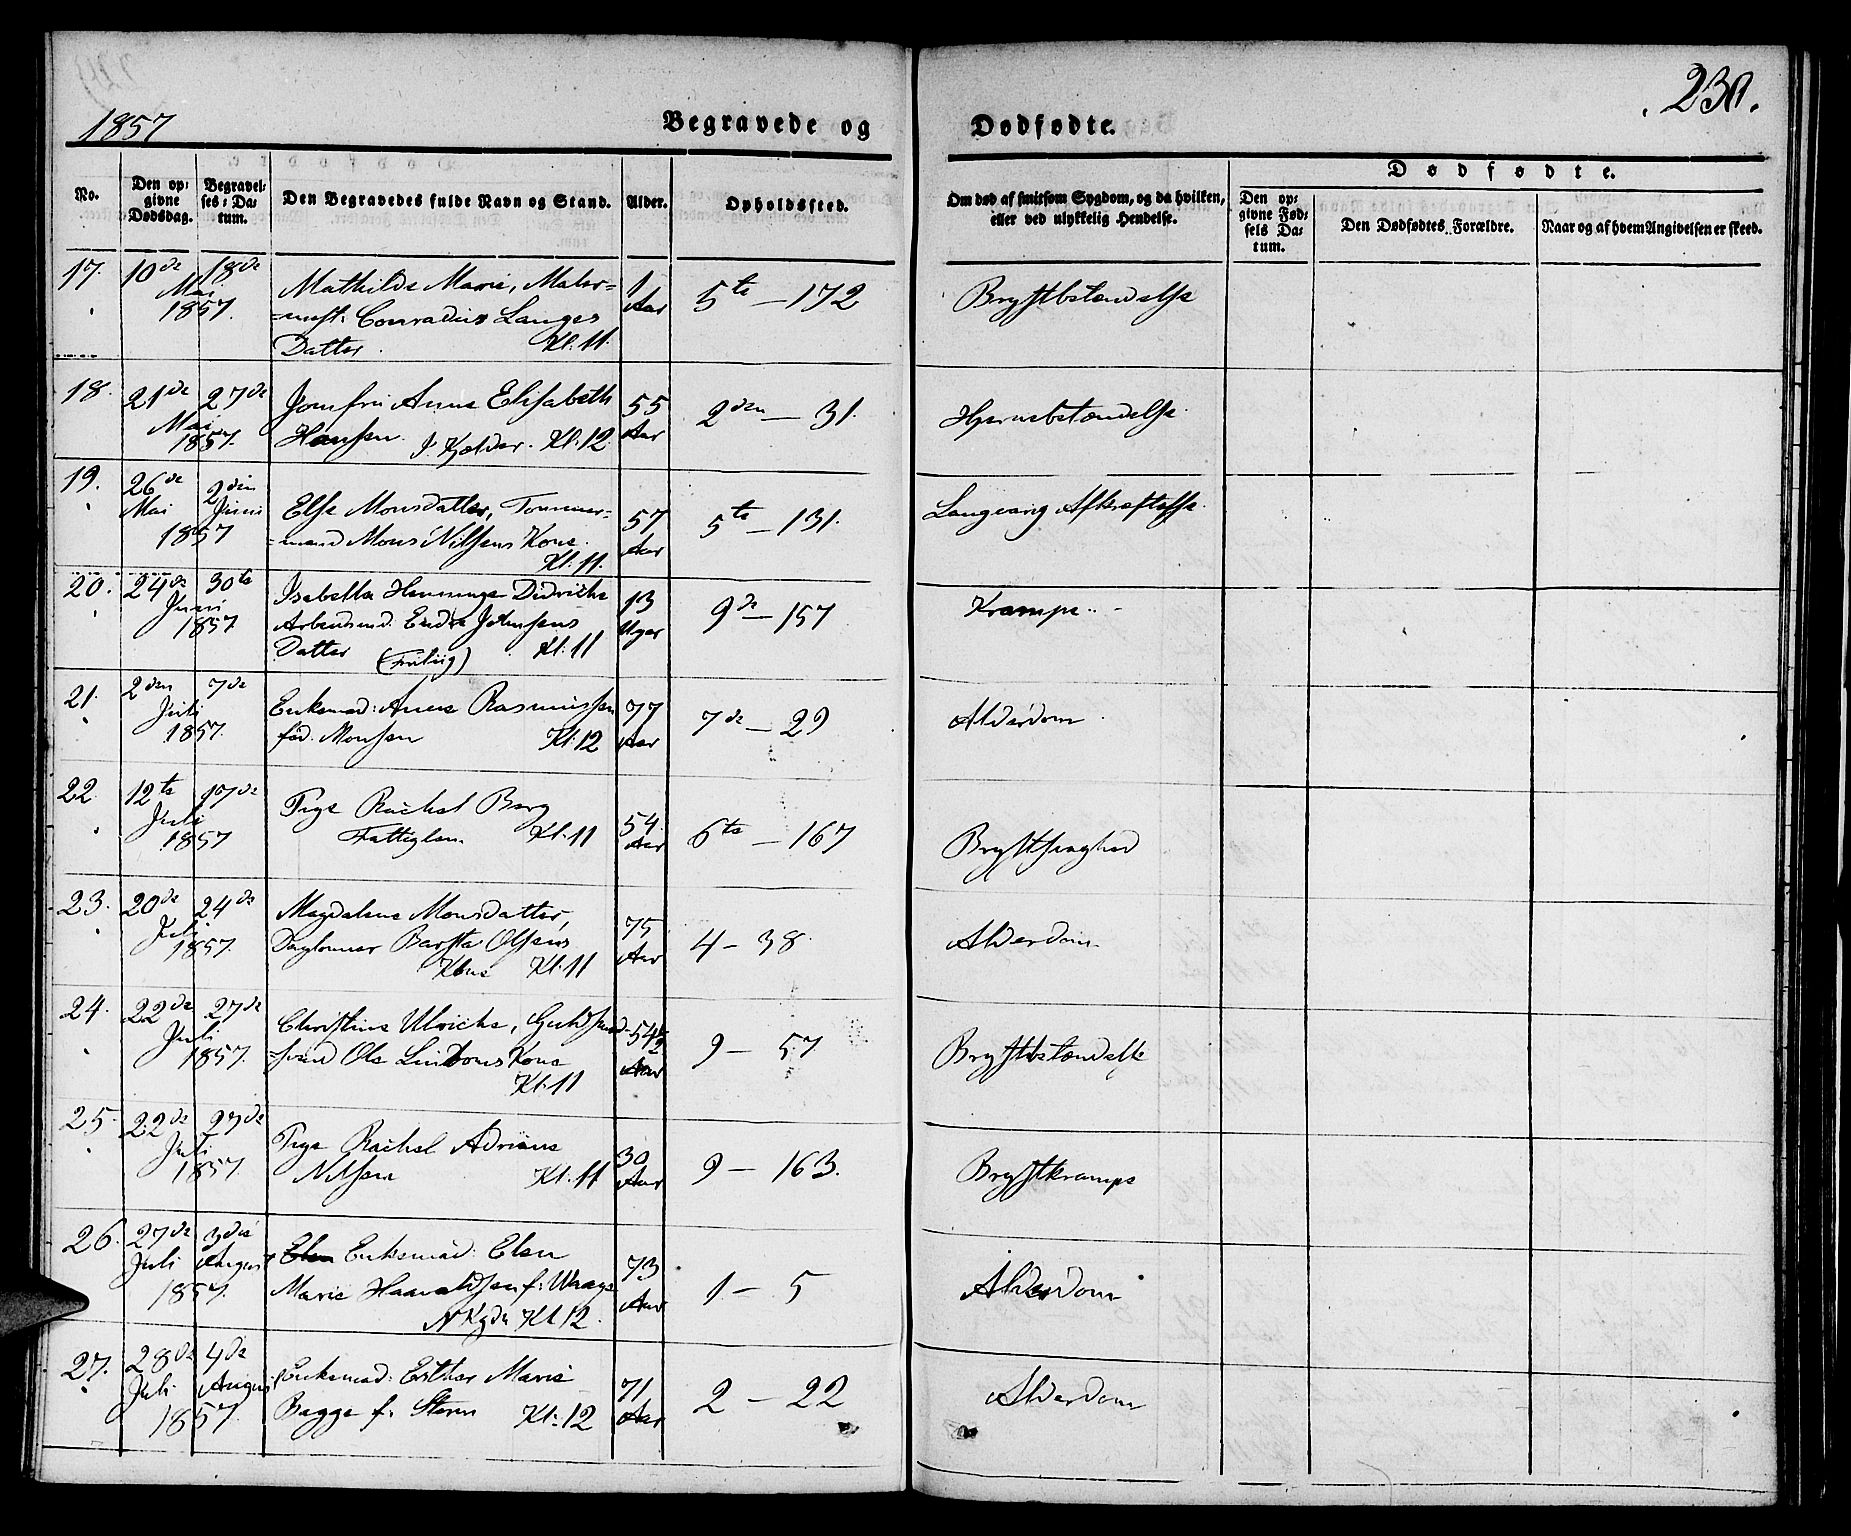 1857
Begravede og Dødfødte.
230.
No.
Den op-
givne
Dødsdag.
Begravel-
ses-Da-
tum.
Den Begravedes fulde Navn og Stand.
Alder.
Opholdssted.
Om død af smitsom Sygdom, og da hvilken,
eller ved ulykkelig Hendelse.
Dødfødte.
Den op-
givne Fød-
sels Da-
tum.
Den Dødfødtes Forældre.
Naar og af hvem Angivelsen er skeed.
17. 10de 18de Mathilde Marie, Maler= 1 5te — 172 Brystbetændelse
Mai =mest: Conradius Langes Aar
1857. Datter. Kl: 11
18. 21de 27de Jomfru Anne Elisabeth 55 2den — 31. Hjernebetændelse
Mai Hansen. I. Kjelder. Kl: 12 Aar
1857.
19. 26de 2den Else Monsdatter, Tømmer= 57 5te — 131. Langvarig Afkræftelse.
Mai Juni =mand Mons Nilsens Kone. Aar
1857 Kl: 11.
20. 24de 30te Isabella Henninge Didriche 13 9de — 157 Krampe
Juni Arbeidsmd. Endre Johnsens Uger
1857 Datter Kl: 11
21. 2den 7de Enkemad: Anne Rasmussen 77 7de — 29 Alderdom
Juli fød. Monsen Kl: 12 Aar
1857.
22. 12te 17de Pige Rachel Berg 54 6te — 167 Brystsvaghed
Juli Fattiglem Kl: 11 Aar
1857
23. 20de 24de Magdalene Monsdatter, 75 4 — 38. Alderdom
Juli Daglønner Olsens Aar
1857. Kone Kl: 11
24. 22de 27de Christine Ulriche, 54½ 9 — 57 Brystbetændelse
Juli =svend Ole Lindboms Kone Aar
1857. Kl: 11
25. 22de 27de Pige Rachel Adriane 30 9 — 163. Brystkrampe
Juli Nilsen Kl: 11 Aar
1857
26. 27de 3die Elen Enkemad: Elen 73 1 — 5 Alderdom
Juli August Marie Haavaldsen f: Aar
1857. Kl 12.
27. 28de 4de Enkemad: Esther Marie 71 2 — 22 Alderdom
Juli August Bagge f. Storm Kl: 12 Aar
1857.